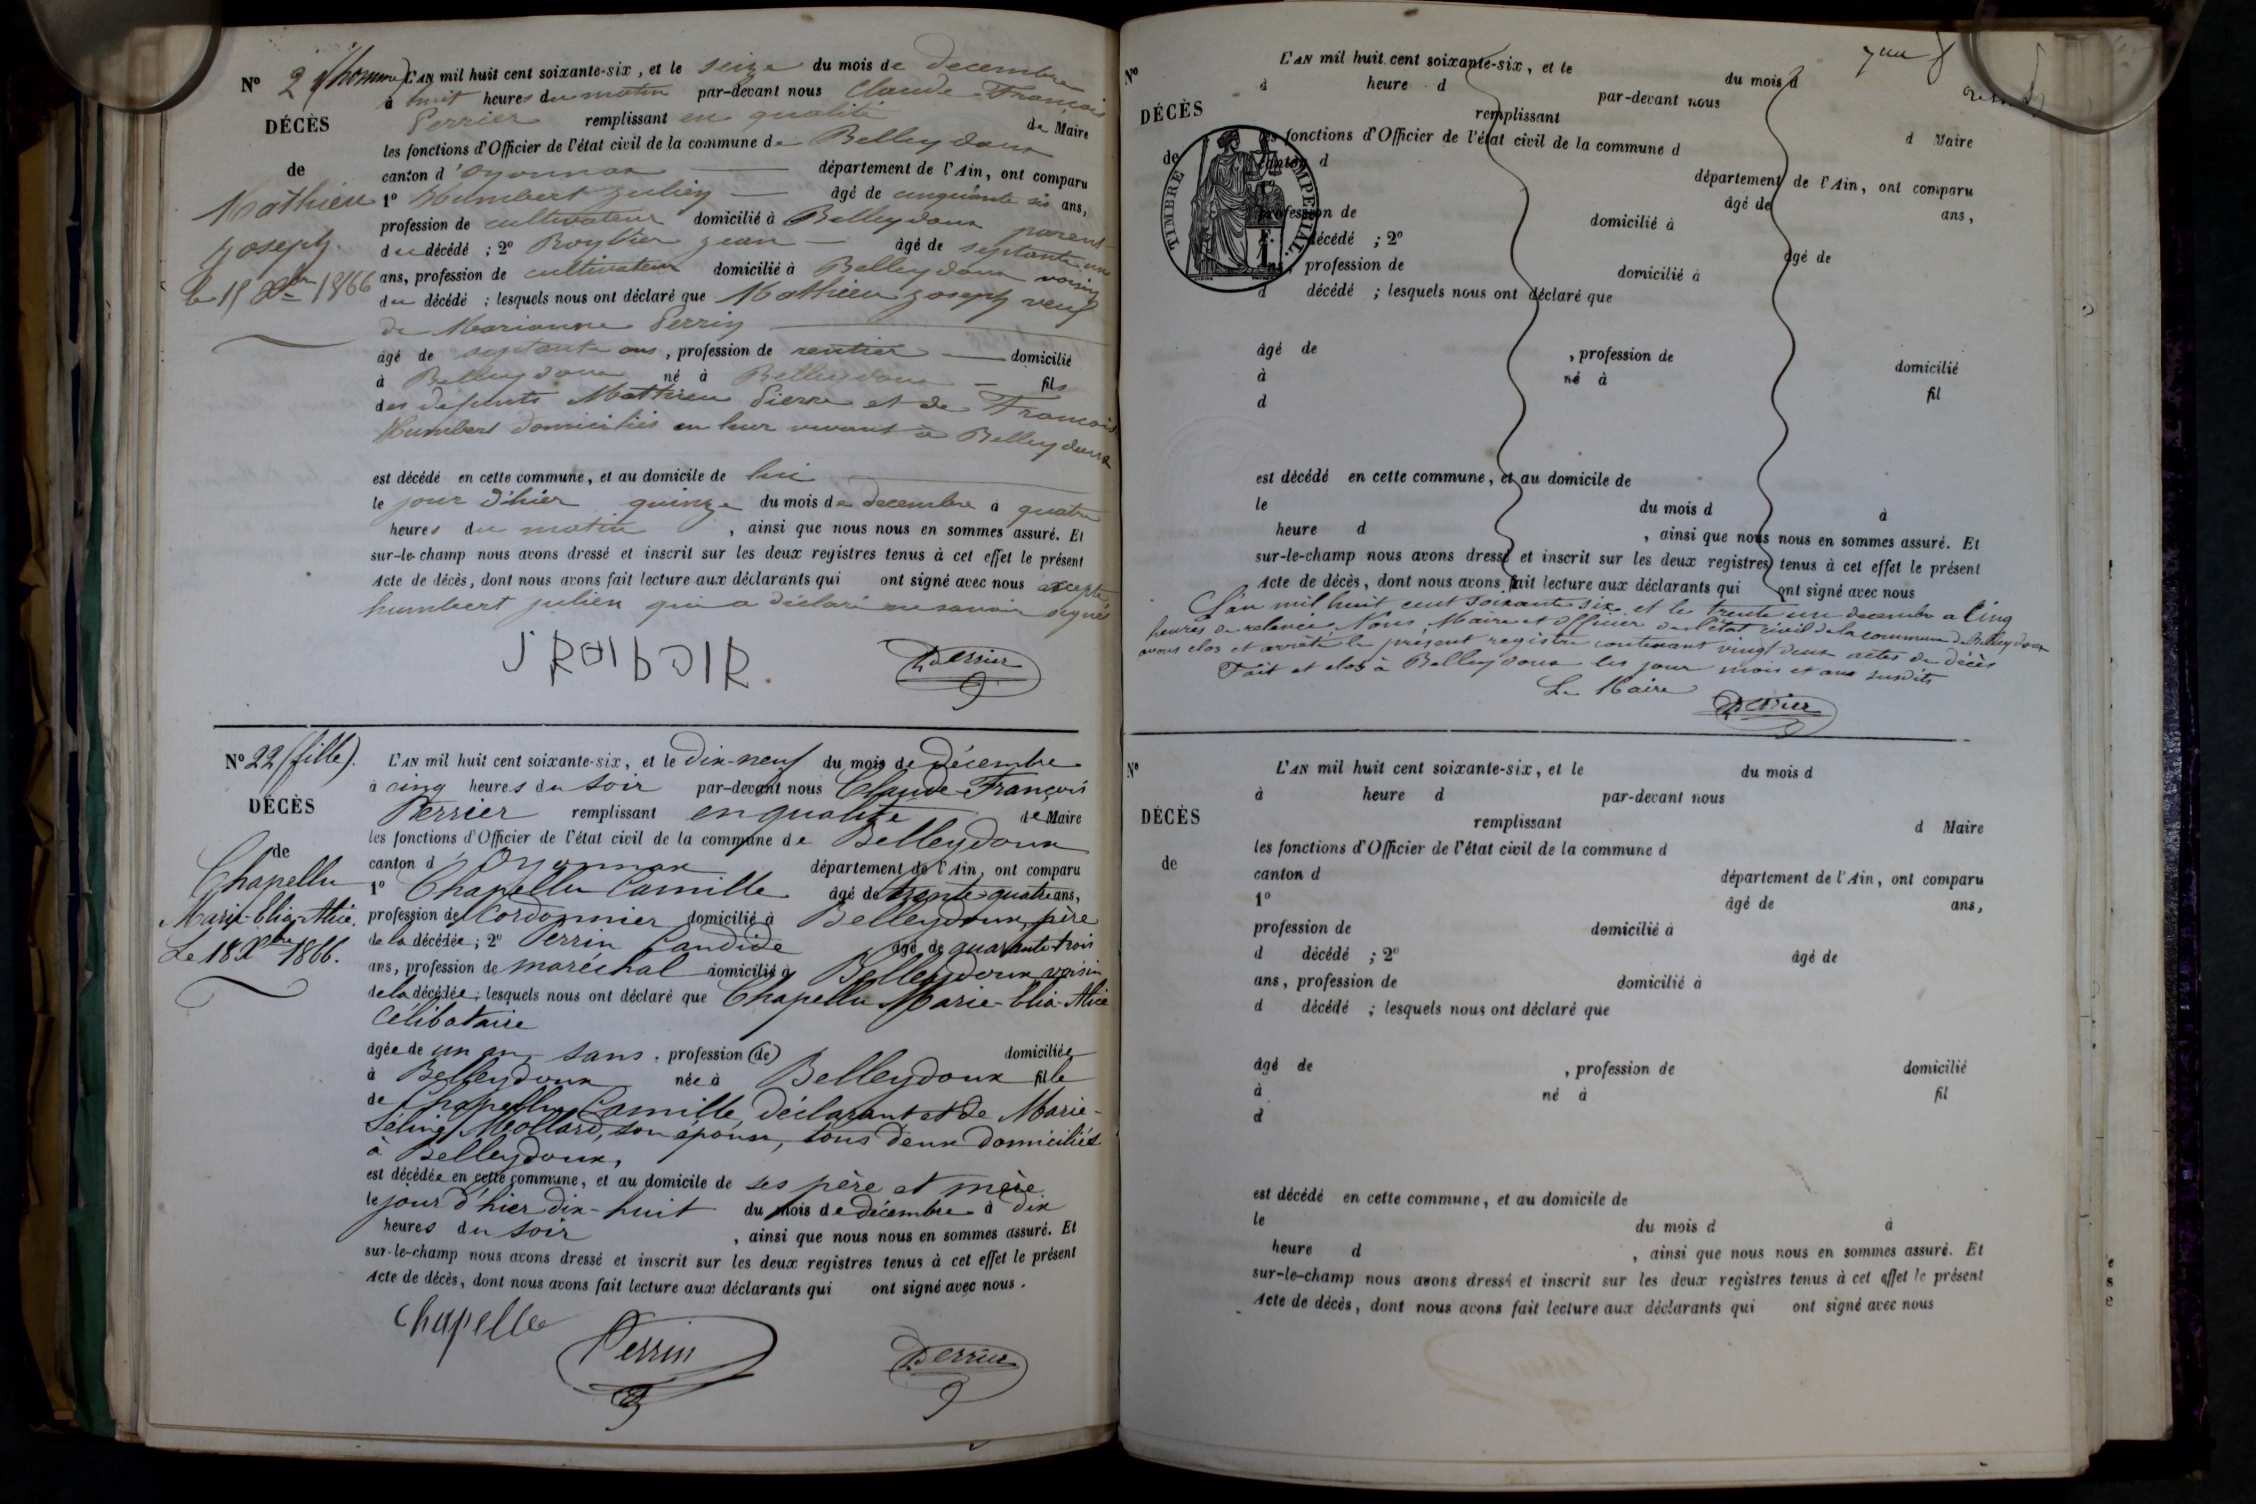 N° 21 (homme)
DÉCÈS
de
Mathieu
Joseph
le 15 Xbre 1866
L'AN mil huit cent soixante-six, et le seize du mois de decembre
à huit heures du matin par-devant nous Claude François
Perrier remplissant en qualité de Maire
les fonctions d'Officier de l'état civil de la commune de Belleydoux
canton d'Oyonnax département de l'Ain, ont comparu
1° Humbert Julien âgé de cinquante six ans,
profession de cultivateur domicilié à Belleydoux parent
du décédé ; 2° Jean âgé de septante un
ans, profession de cultivateur domicilié à Belleydoux voisin
du décédé ; lesquels nous ont déclaré que Mathieu Joseph veuf
de Marianne Perrin
âgé de septante ans, profession de rentier domicilié
à Belleydoux né à Belleydoux fils
des defunts Mathieu Pierre et de François
Humbert domiciliés en leur vivant à Belleydoux
est décédé en cette commune, et au domicile de lui
le jour d'hier quinze du mois de decembre à quatre
heures du matin, ainsi que nous nous en sommes assuré. Et
sur-le-champ nous avons dressé et inscrit sur les deux registres tenus à cet effet le présent
Acte de décès, dont nous avons fait lecture aux déclarants qui ont signé avec nous excepte
humbert julien qui a déclaré ne savoir signer
Perrier
N° 22 (fille).
DÉCÈS
de
Chapellu
Marie-Elia-Alice.
Le 18 Xbre 1866.
L'AN mil huit cent soixante-six, et le dix-neuf du mois de Décembre
à cinq heures du soir par-devant nous Claude-François
Perrier remplissant en qualité de Maire
les fonctions d'Officier de l'état civil de la commune de Belleydoux
canton d'Oyonnax département de l'Ain, ont comparu
1° Chapellu Camille âgé de trente-quatre ans,
profession de Cordonnier domicilié à Belleydoux, père
de la décédée ; 2° Perrin Candide âgé de quarante-trois
ans, profession de maréchal domicilié à Belleydoux, voisin
de la décédée ; lesquels nous ont déclaré que Chapellu Marie-Elia-Alice
Célibataire
âgée de un an, sans profession (de) domiciliée
à Belleydoux née à Belleydoux fille
de Chapellu Camille, déclarant et de Marie-
Séline Mollard, son épouse, tous deux domiciliés
à Belleydoux,
est décédée en cette commune, et au domicile de ses père et mère
le jour d'hier dix-huit du mois de Décembre à dix
heures du soir, ainsi que nous nous en sommes assuré. Et
sur-le-champ nous avons dressé et inscrit sur les deux registres tenus à cet effet le présent
Acte de décès, dont nous avons fait lecture aux déclarants qui ont signé avec nous.
Chapellu
Perrin
Perrier
N°
DÉCÈS
de
TIMBRE IMPERIAL.
L'AN mil huit cent soixante-six, et le du mois d
à heure d par-devant nous
remplissant d Maire
les fonctions d'Officier de l'état civil de la commune d
canton d département de l'Ain, ont comparu
âgé de ans,
profession de domicilié à
décédé ; 2° âgé de
ans, profession de domicilié à
d décédé ; lesquels nous ont déclaré que
âgé de , profession de domicilié
à né à fil
d
est décédé en cette commune, et au domicile de
le du mois d à
heure d , ainsi que nous nous en sommes assuré. Et
sur-le-champ nous avons dressé et inscrit sur les deux registres tenus à cet effet le présent
Acte de décès, dont nous avons fait lecture aux déclarants qui ont signé avec nous
L'an mil huit cent soixante six et le trente un decembre a cinq
heures de relevee Nous Maire et Officier de l'état civil de la commune de Belleydoux
avons clos et arrêté le présent registre contenant vingt deux actes de décès
Fait et clos à Belleydoux les jour mois et ans susdits
Le Maire
Perrier
N°
DÉCÈS
de
L'AN mil huit cent soixante-six, et le du mois d
à heure d par-devant nous
remplissant d Maire
les fonctions d'Officier de l'état civil de la commune d
canton d département de l'Ain, ont comparu
1° âgé de ans,
profession de domicilié à
d décédé ; 2° âgé de
ans, profession de domicilié à
d décédé ; lesquels nous ont déclaré que
âgé de , profession de domicilié
à né à fil
d
est décédé en cette commune, et au domicile de
le du mois d à
heure d , ainsi que nous nous en sommes assuré. Et
sur-le-champ nous avons dressé et inscrit sur les deux registres tenus à cet effet le présent
Acte de décès, dont nous avons fait lecture aux déclarants qui ont signé avec nous